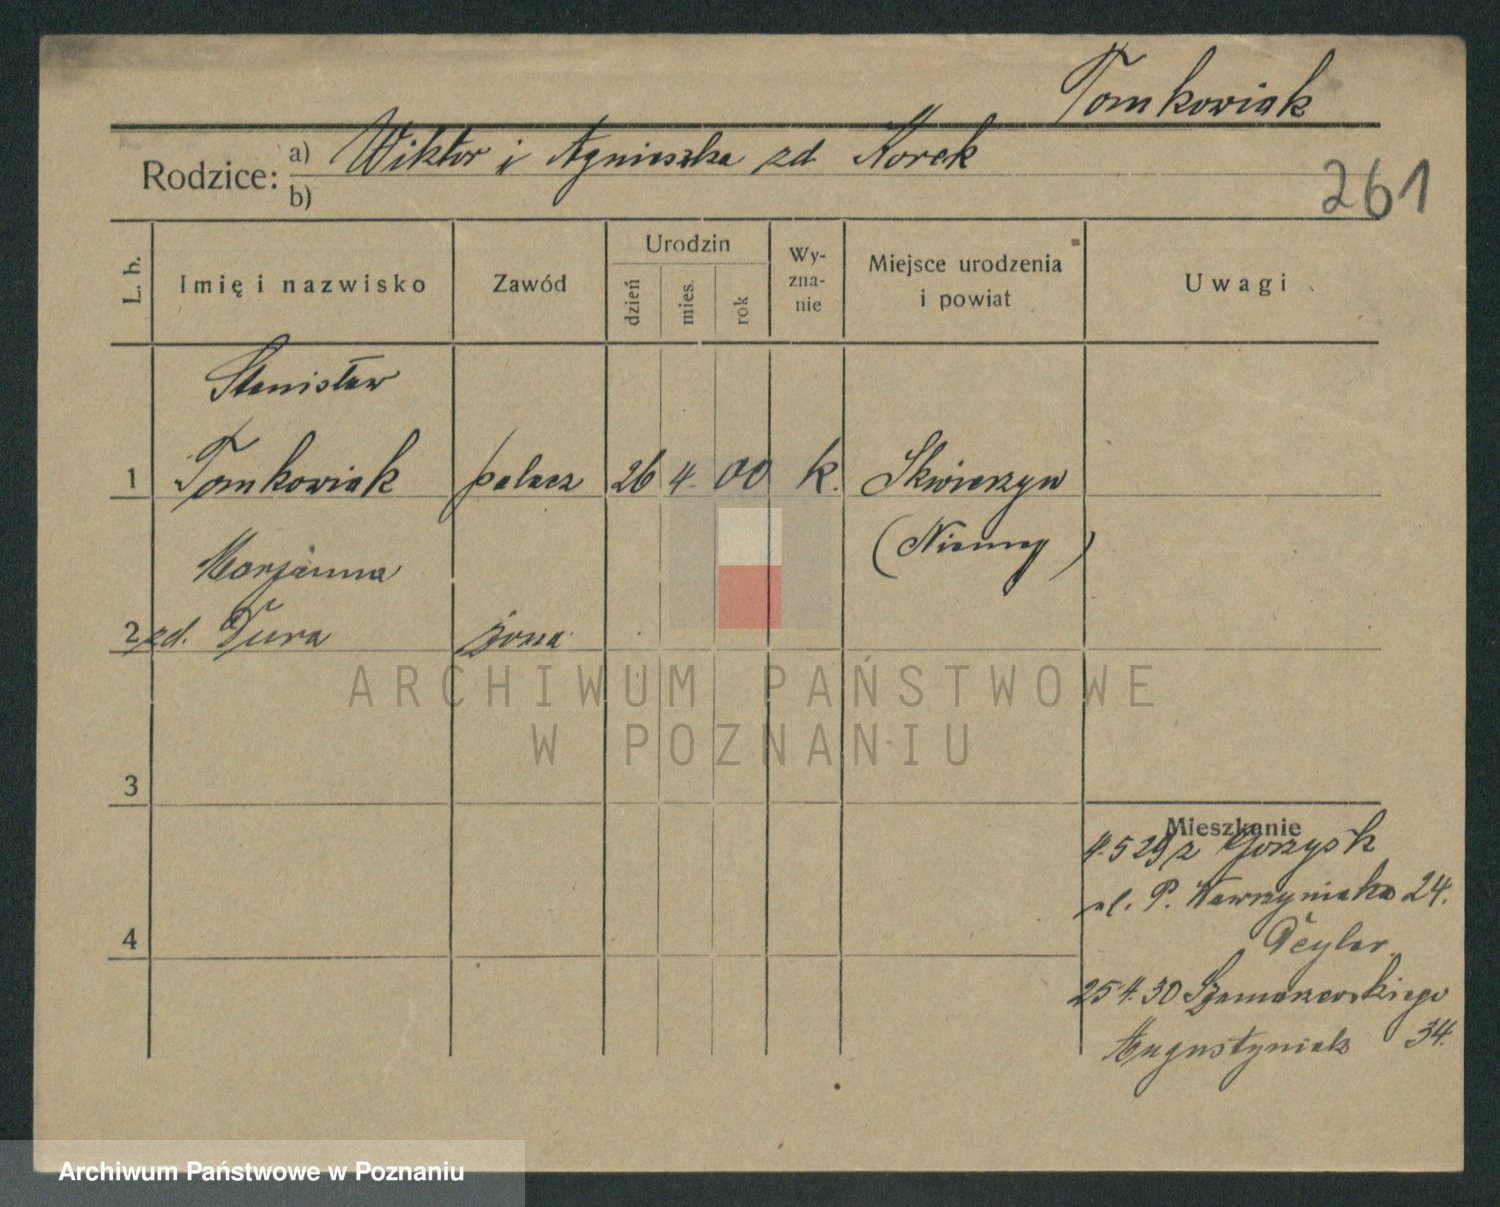 Tomkowiak
Rodzice: a) Wiktor i Agnieszka zd Korek
b)
261
L. b.
Imię i nazwisko
Zawód
Urodzin
dzień
mies.
rok
Wy-
zna-
nie
Miejsce urodzenia
i powiat
Uwagi
Stanisław
1 Tomkowiak palacz 26 4. 00 k. Skwierzyn
(Niemcy)
Marjanna
2 zd. Dura żona
3
4
Mieszkanie
4. 5 29 z Gorzysk
ul. P. Wawrzyniaka 24.
25 4. 30 Szamarzewskiego
Augustyniak 34.
ARCHIWUM PAŃSTWOWE
W POZNANIU
Archiwum Państwowe w Poznaniu